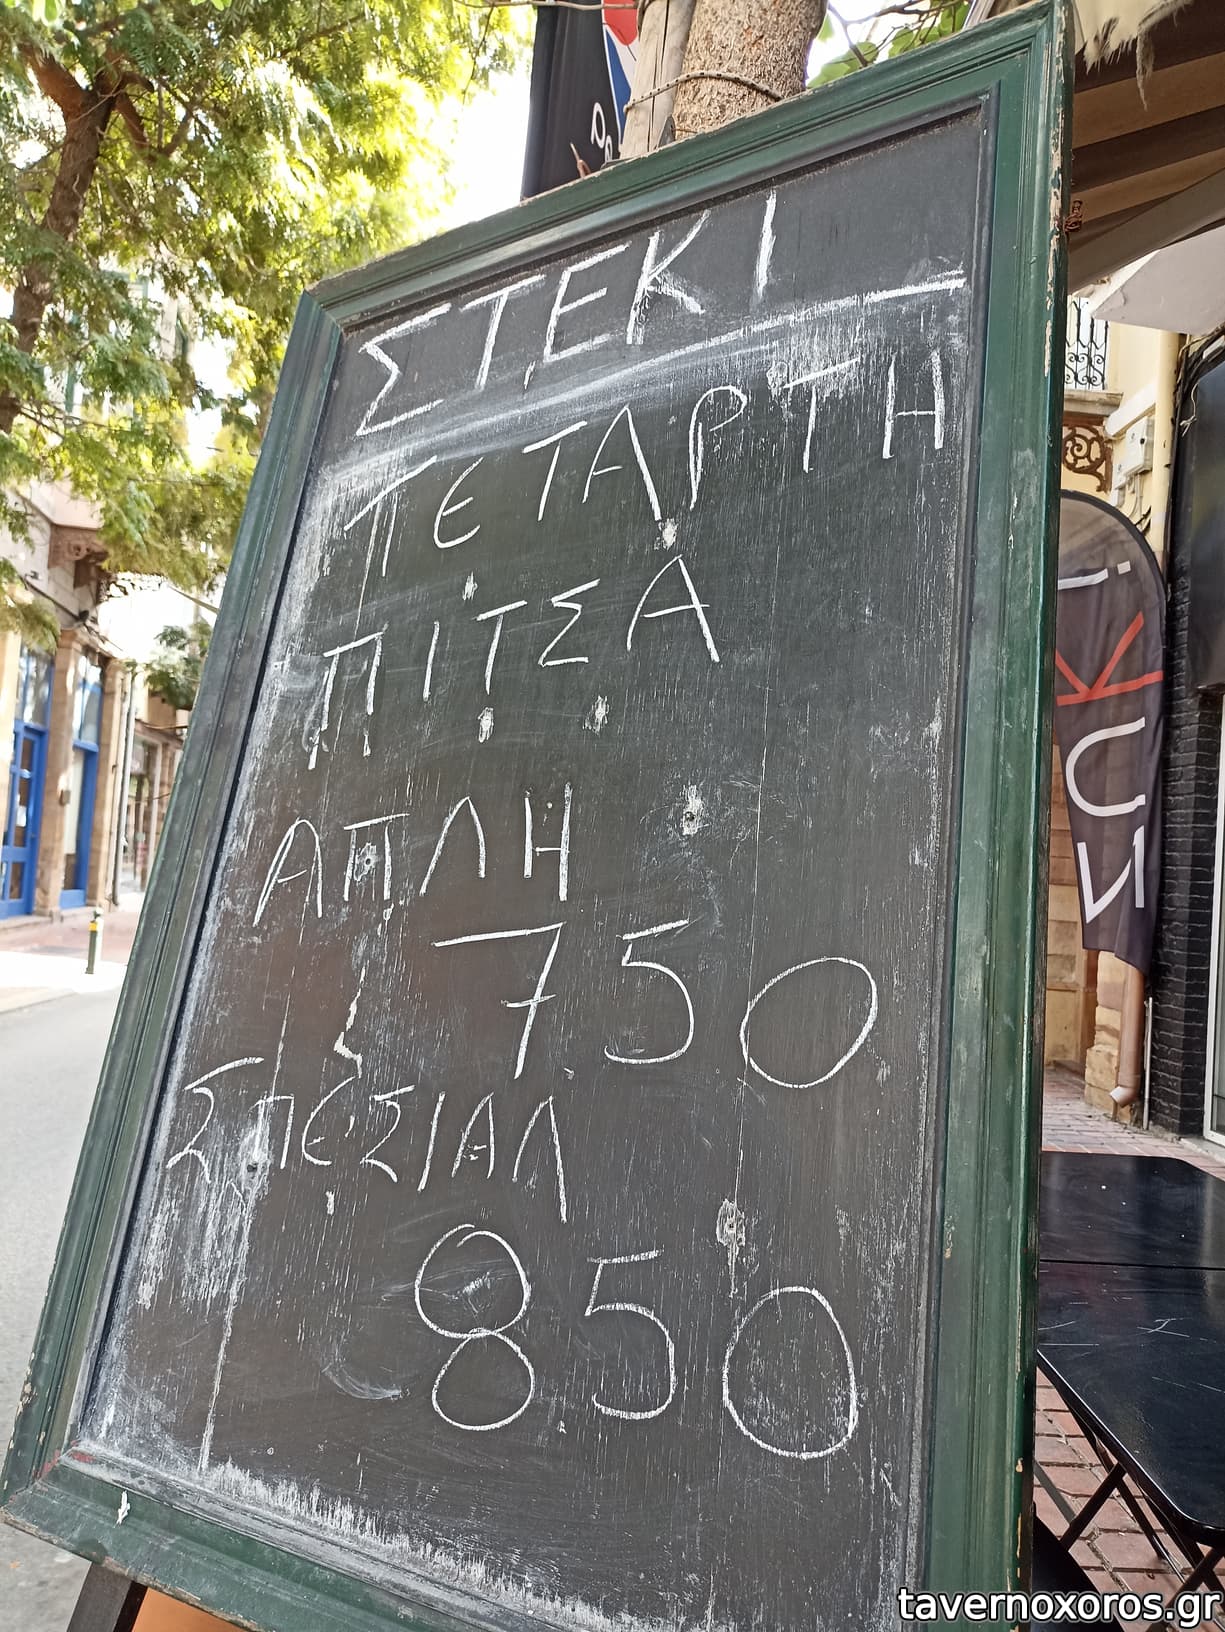 ΣΤΕΚΙ
ΤΕΤΑΡΤΗ
ΠΙΤΣΑ
ΑΠΛΗ
750
ΣΠΕΣΙΑΛ
850
tavernoxoros.gr